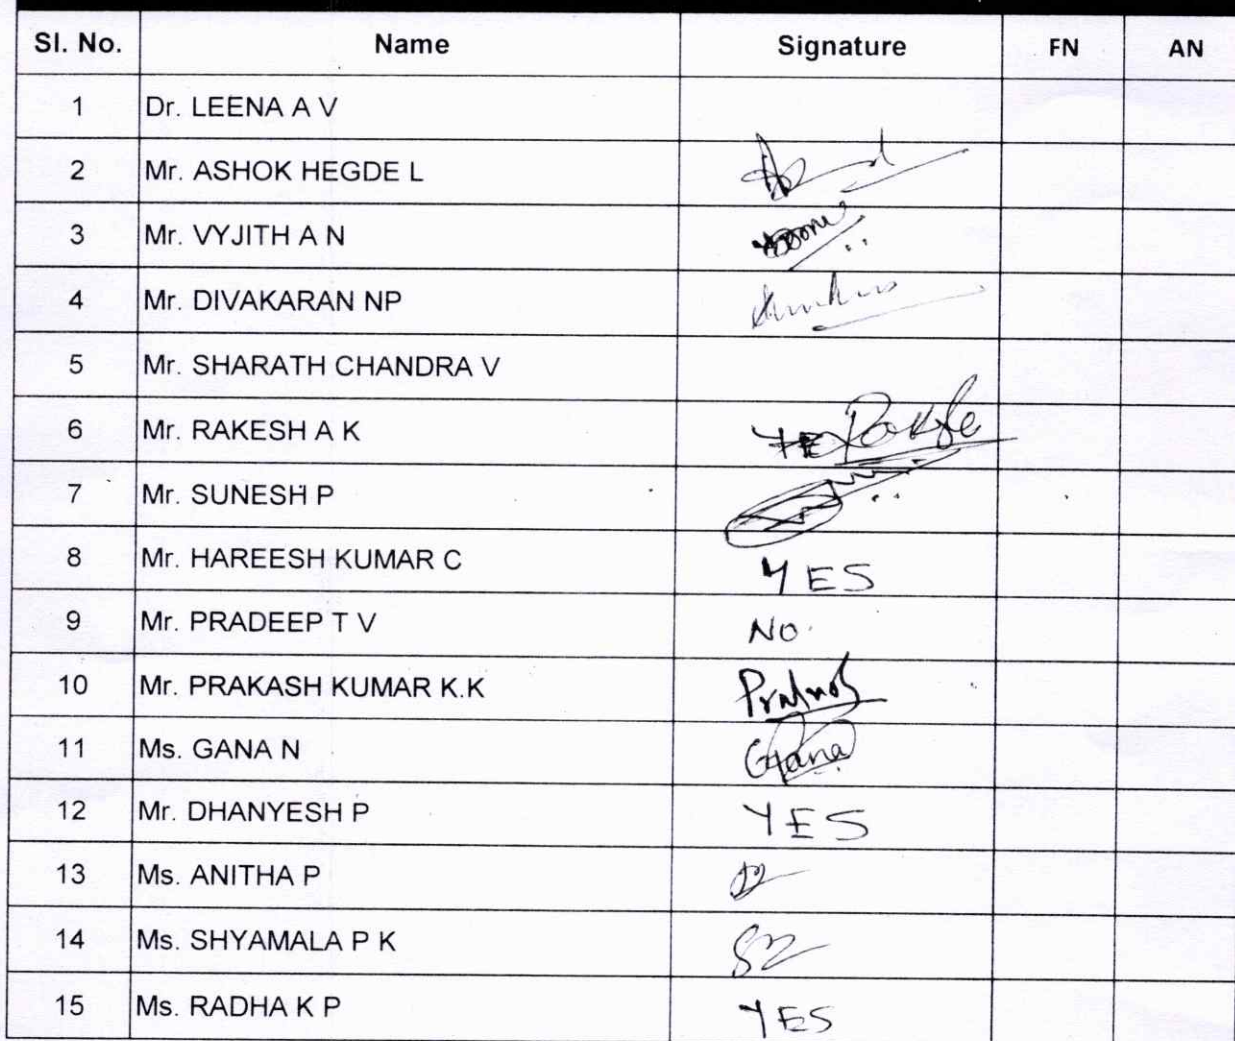 Sl. No. Name Signature FN AN
1 Dr. LEENA A V
2 Mr. ASHOK HEGDE L
3 Mr. VYJITH A N
4 Mr. DIVAKARAN NP
5 Mr. SHARATH CHANDRA V
6 Mr. RAKESH A K
7 Mr. SUNESH P
8 Mr. HAREESH KUMAR C YES
9 Mr. PRADEEP T V NO.
10 Mr. PRAKASH KUMAR K.K
11 Ms. GANA N Gana
12 Mr. DHANYESH P YES
13 Ms. ANITHA P
14 Ms. SHYAMALA P K
15 Ms. RADHA K P YES